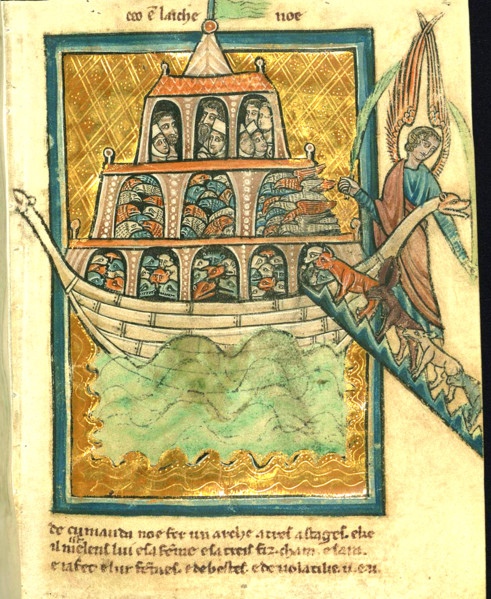 ceo ē laiche noe
de cumanda noe fer un arche a tres astages. ehe
il meienz lui e sa femme e sa treis fiz. cham. e sam.
e iafet. e lur femes. e de bestes. e de uolatilie. u. e. u.